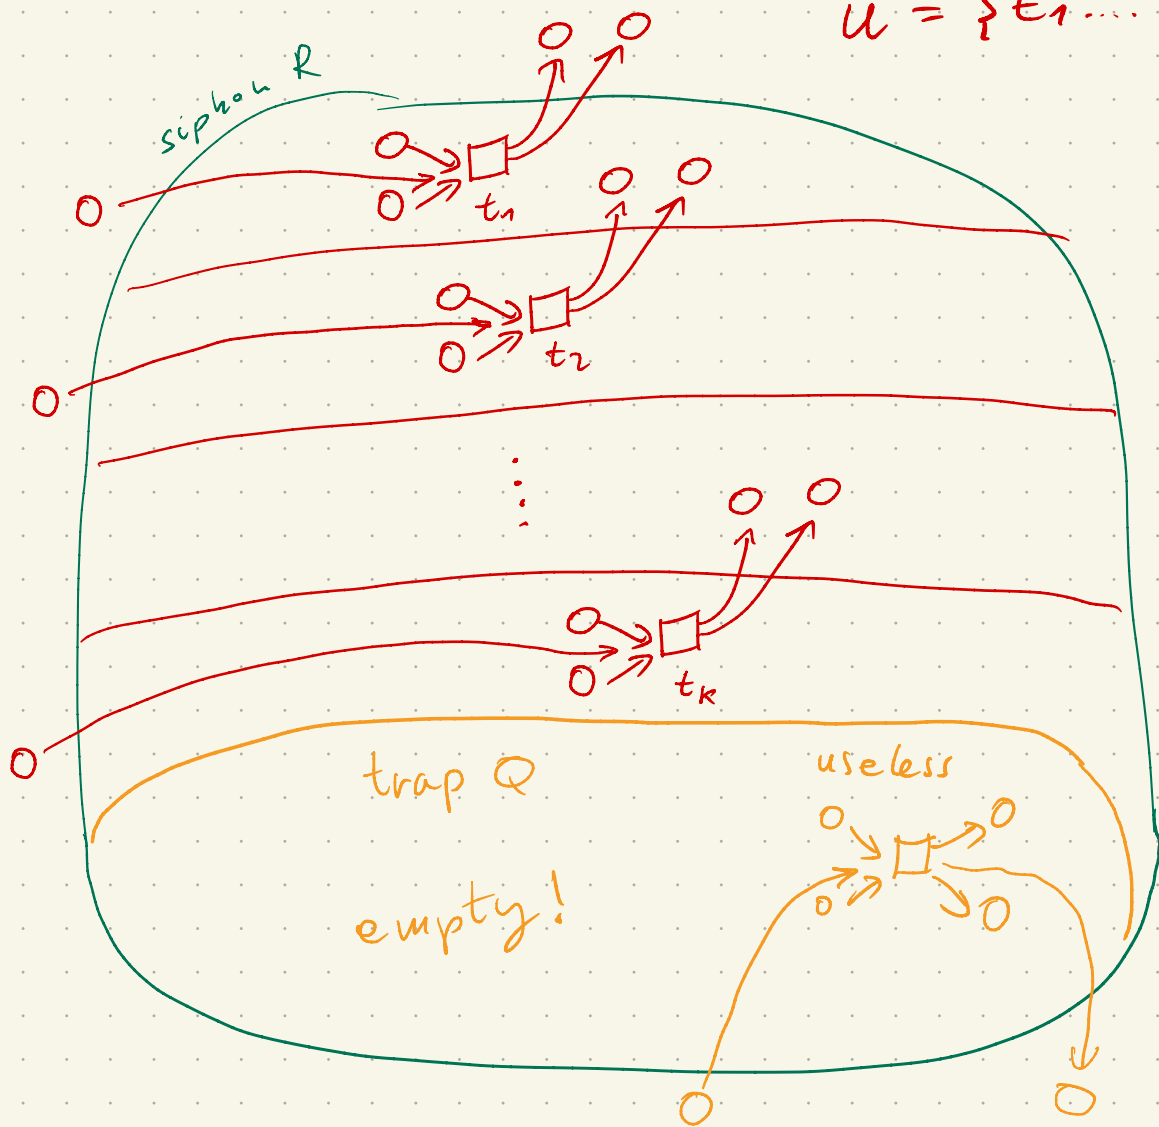 U = {t₁....
siphon R
t₁
t₂
⋮
tₖ
trap Q
useless
empty!